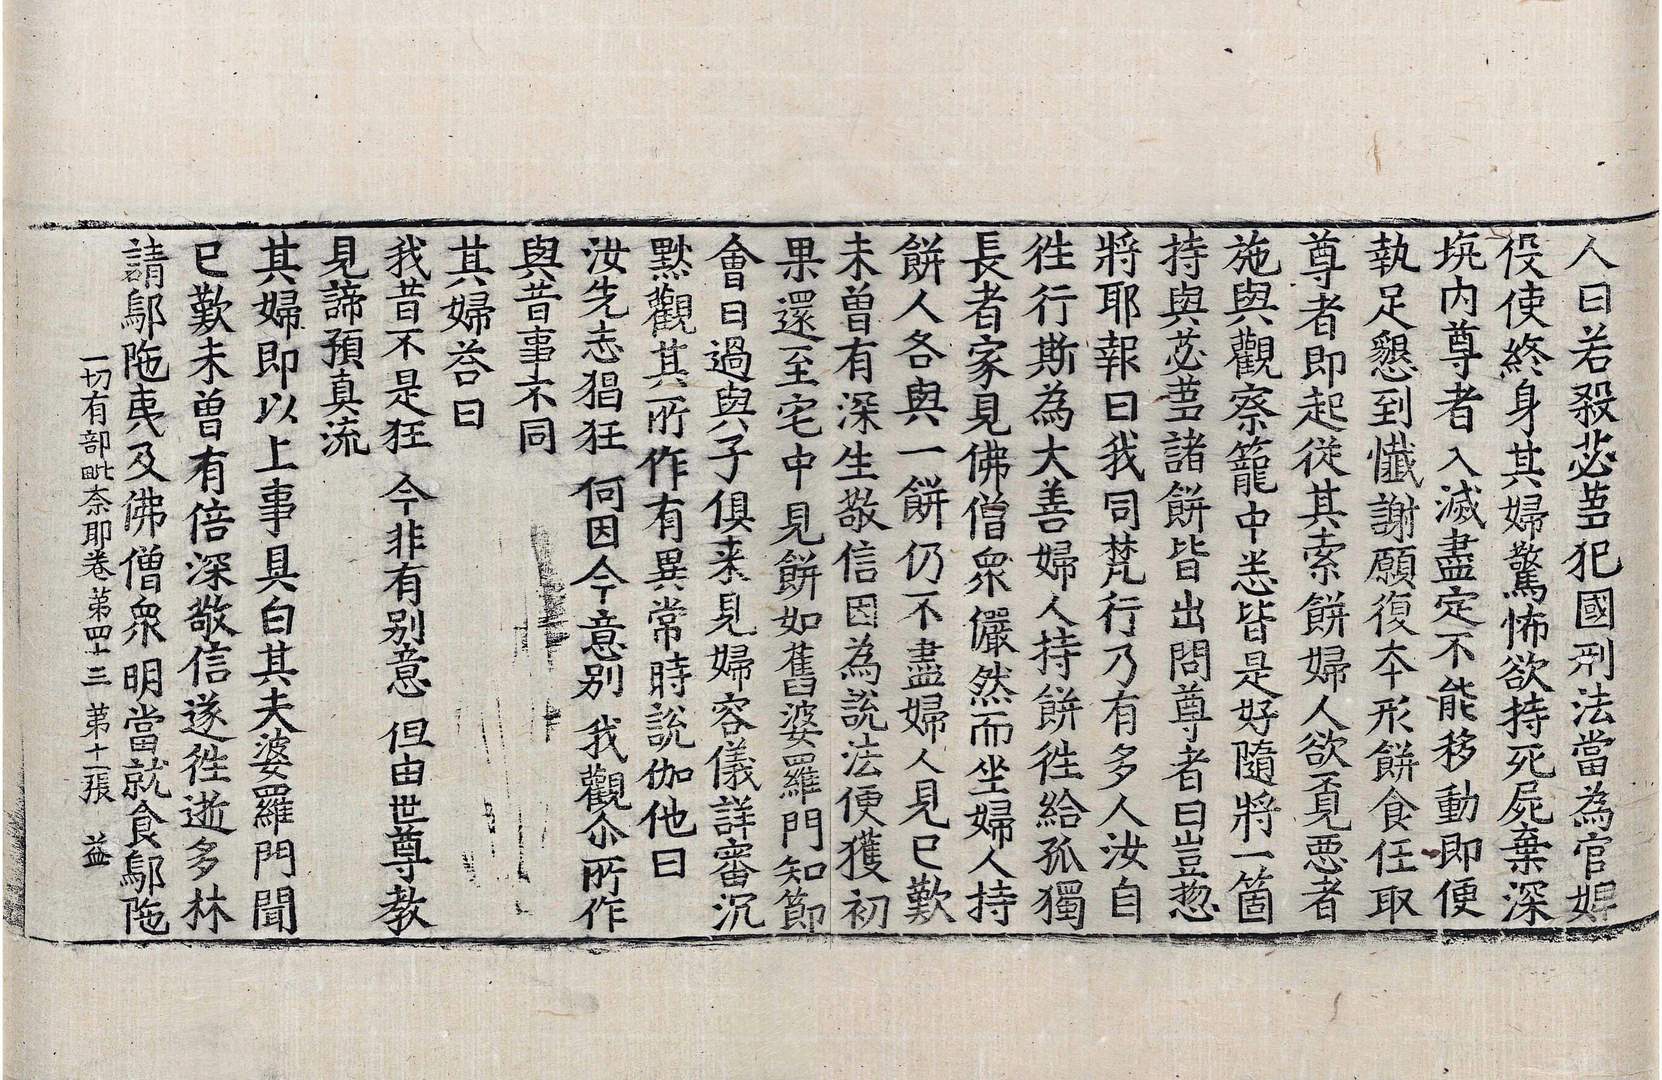 人曰若殺苾蒭犯國刑法當為官婢
役使終身其婦驚怖欲持死屍棄深
坑内尊者入滅盡定不能移動即便
執足懇到懺謝願復夲形餅食任取
尊者即起從其索餅婦人欲覓惡者
施與觀察籠中悉皆是好隨將一箇
持與苾蒭諸餅皆出問尊者曰豈惣
將耶報曰我同梵行乃有多人汝自
徃行斯為大善婦人持餅徃給孤獨
長者家見佛僧衆儼然而坐婦人持
餅人各與一餅仍不盡婦人見已歎
未曽有深生敬信因為說法便獲初
果還至宅中見餅如舊婆羅門知節
會日過與子俱来見婦容儀詳審沉
默觀其所作有異常時說伽他曰
汝先志猖狂 何因今意別 我觀尒所作
與昔事不同
其婦荅曰
我昔不是狂 今非有別意 但由世尊教
見諦預真流
其婦即以上事具白其夫婆羅門聞
已歎未曽有倍深敬信遂徃逝多林
請鄔陁夷及佛僧衆明當就食鄔陁
一切有部毗奈耶卷第四十三 第十一張 益